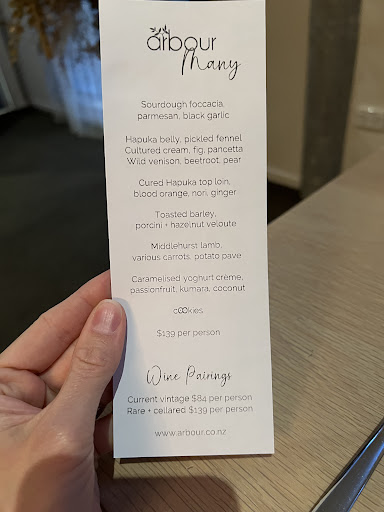 arbour
Many
Sourdough foccacia,
parmesan, black garlic
Hapuka belly, pickled fennel
Cultured cream, fig, pancetta
Wild venison, beetroot, pear
Cured Hapuka top loin,
blood orange, nori, ginger
Toasted barley,
porcini + hazelnut veloute
Middlehurst lamb,
various carrots, potato pave
Caramelised yoghurt crème,
passionfruit, kumara, coconut
cOOkies
$139 per person
Wine Pairings
Current vintage $84 per person
Rare + cellared $139 per person
www.arbour.co.nz